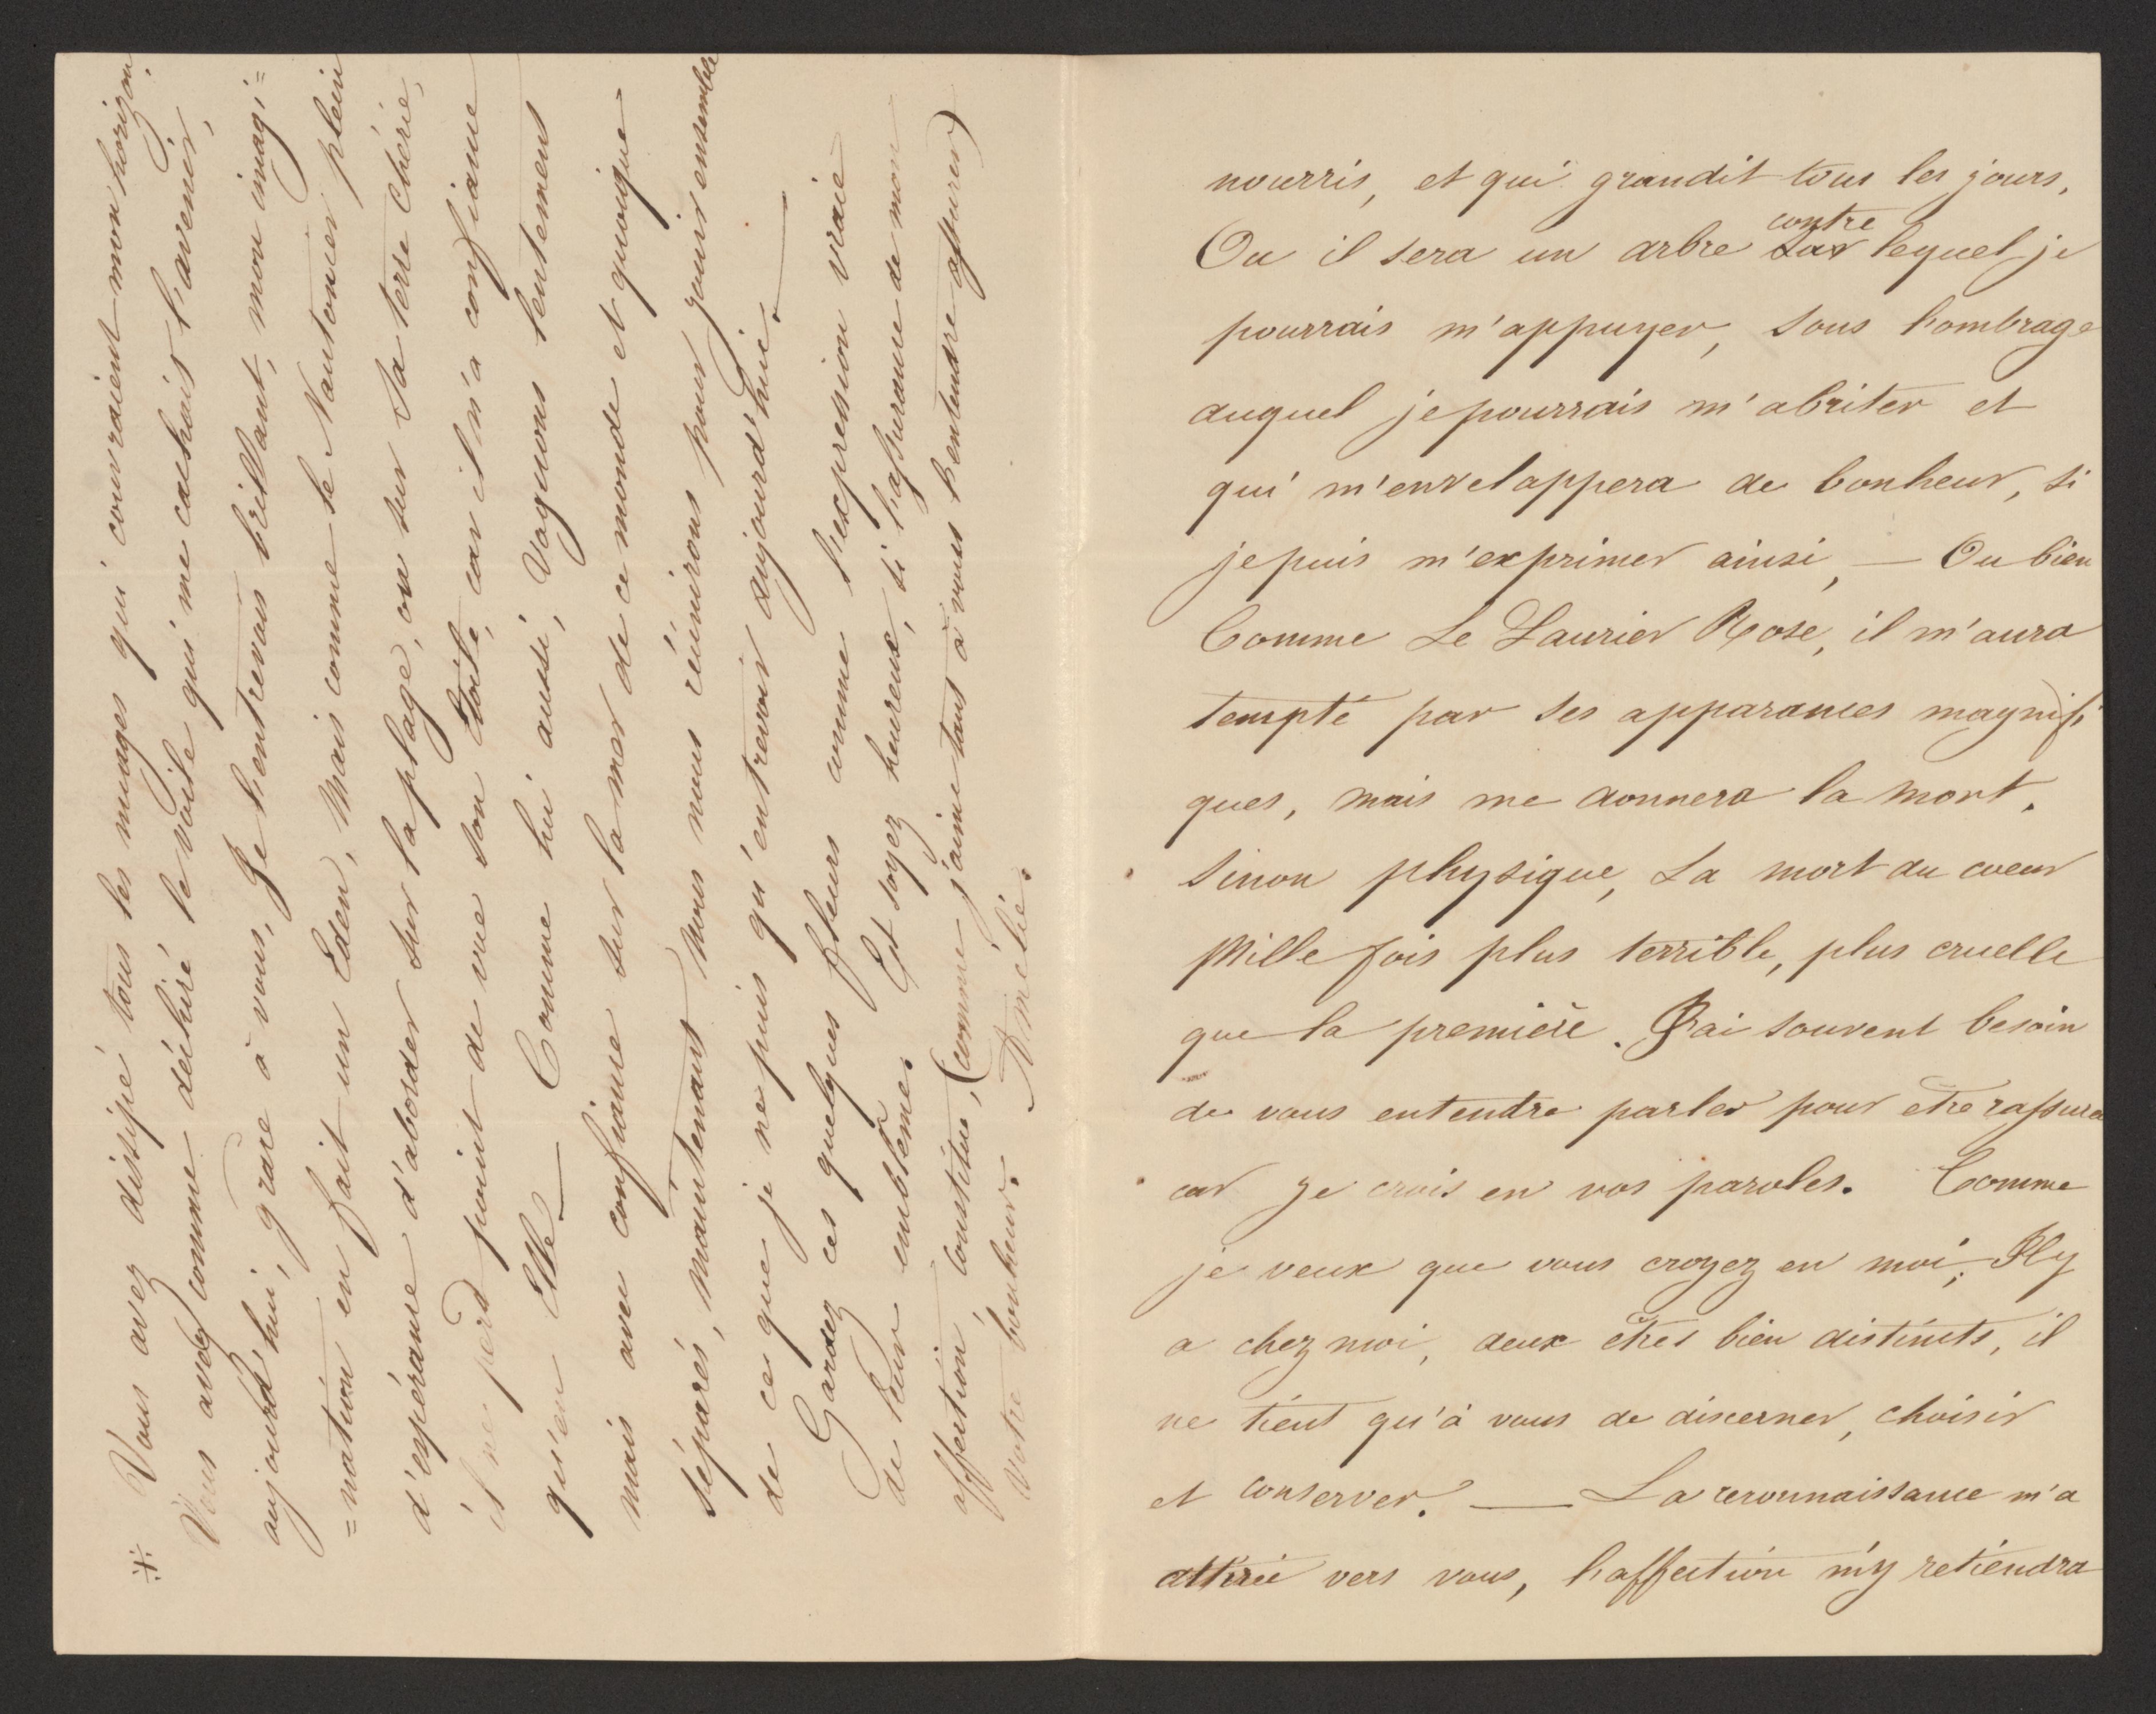 nourris, et qui grandit tous les jours,
Ou il sera un arbre contre lequel je
pourrais m'appuyer, sous l'ombrage
auquel je pourrais m'abriter et
qui m'envelappera de bonheur, si
je puis m'exprimer ainsi, — Ou bien
Comme Le Laurier Rose, il m'aura
tempté par ses apparances magnifi
ques, mais me donnera la mort,
sinon physique, La mort du coeur
Mille fois plus terrible, plus cruelle
que la première. J'ai souvent besoin
de vous entendre parler pour être rassuré
car je crois en vos paroles. Comme
je veux que vous croyez en moi; Il y
a chez moi, deux êtres bien distincts, il
ne tient qu'à vous de discerner, choisir
et conserver. — La reconnaissance m'a
attirée vers vous, l'affection m'y retiendra
Vous avez dissipé tous les nuages qui couvraient mon horizon,
Vous avez comme déchiré le voile qui me cachait l'avenir,
aujourd'hui, grace à vous, Je l'entrevois brillant, mon imagi=
=nation en fait un Eden, Mais comme le Nautonier plein
d'espérance d'aborder sur la plage, ou sur sa terre Chérie,
il ne perd point de vue son étoile, car il n'a confiance
qu'en Elle — Comme lui aussi, Voguons lentement
mais avec confiance sur la mer de ce monde et quoique
séparés, maintenant Nous nous réunirons pour jouir ensemble
de ce que je ne puis qu'entrevoir aujourd'hui. —
Gardez ces quelques fleurs comme l'expression vraie
de leur emblême. Et soyez heureux, si l'assurance de mon
affection constitue, (comme j'aime tant à vous l'entendre assurer)
votre bonheur. Amélie.